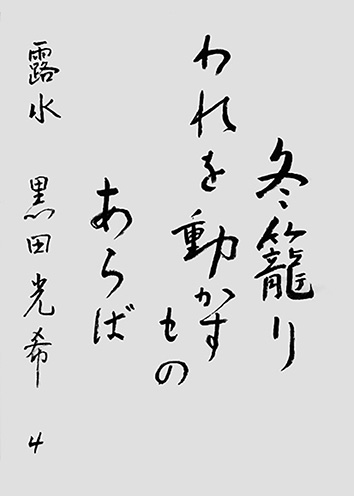 冬籠り
われを動かす
もの
あらば
露水 黒田光希 4